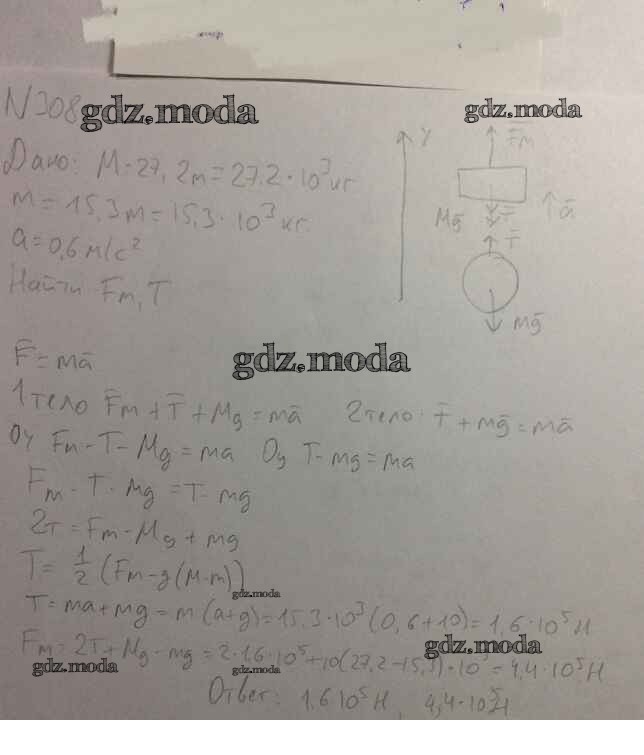 N308
gdz.moda
gdz.moda
Дано: M = 27,2т = 27.2 · 10³ кг
m = 15,3т = 15.3 · 10³ кг.
a = 0,6 м/с²
Найти Fт, T
y
F̄т
Mḡ
T̄
ā
T̄
mḡ
gdz.moda
F̄ = mā
1 тело F̄т + T̄ + Mg = mā 2 тело · T̄ + mḡ = mā
Oy Fт - T - Mg = ma Oy T - mg = ma
Fт - T - Mg = T - mg
2T = Fт - Mg + mg
T = 1/2 (Fт - g(M-m))
gdz.moda
T = ma + mg = m(a+g) = 15.3 · 10³ (0,6 + 10) = 1,6 · 10⁵ Н
Fт = 2T + Mg - mg = 2 · 1.6 · 10⁵ + 10(27,2 - 15,3) · 10³ = 4,4 · 10⁵ Н
gdz.moda
gdz.moda
gdz.moda
Ответ: 1.6 10⁵ Н, 4,4 · 10⁵ Н